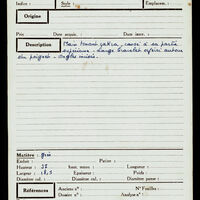 Indice : Salle : Emplacem. :
Origine
Prix : Date acquis. : Date inscr. :
Description Main tenant çakra, cassé à sa partie
supérieure. Large bracelet orfévri autour
du poignet. Ongles incisés.
Matière : grès
Enduit : Patine :
Hauteur : 27 haut. socu : Longueur :
Largeur : 18,5 Epaisseur : Poids :
Diamètre col. : Diamètre panse :
Références Anciens n° : N° Fouilles :
Dossier n° : Analyse n° :